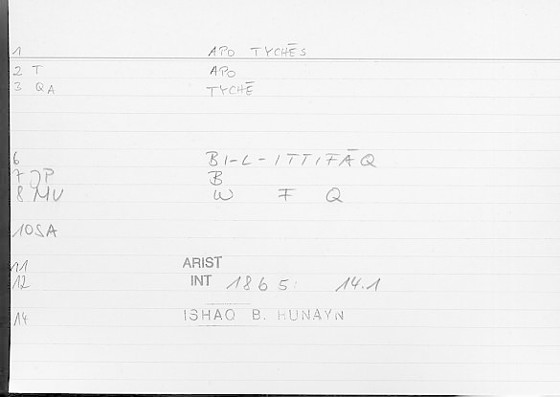 1 APO TYCHĒS
2 T APO
3 QA TYCHĒ
6 BI-L-ITTIFĀQ
7 JP B
8 MV W F Q
10 SA
11 ARIST
12 INT 1865: 14.1
14 ISHAQ B. HUNAYN